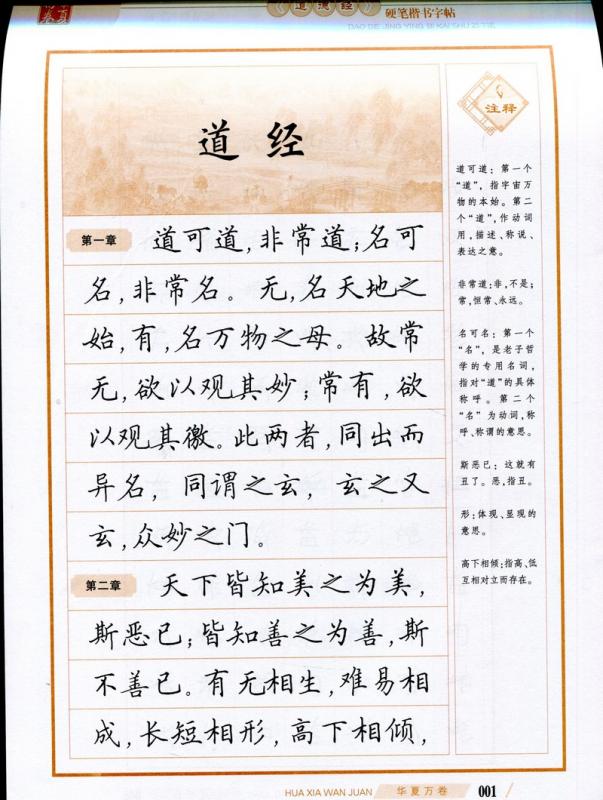 《道德经》
硬笔楷书字帖
道经
第一章
道可道,非常道;名可
名,非常名。无,名天地之
始,有,名万物之母。故常
无,欲以观其妙;常有,欲
以观其徼。此两者,同出而
异名,同谓之玄,玄之又
玄,众妙之门。
第二章
天下皆知美之为美,
斯恶已;皆知善之为善,斯
不善已。有无相生,难易相
成,长短相形,高下相倾,
注释
道可道:第一个
“道”,指宇宙万
物的本始。第二
个“道”,作动词
用,描述、称说、
表达之意。
非常道:非,不是;
常,恒常、永远。
名可名:第一个
“名”,是老子哲
学的专用名词,
指对“道”的具体
称呼。第二个
“名”为动词,称
呼、称谓的意思。
斯恶已:这就有
丑了。恶,指丑。
形:体现、显现的
意思。
高下相倾:指高、低
互相对立而存在。
HUA XIA WAN JUAN 华夏万卷 001